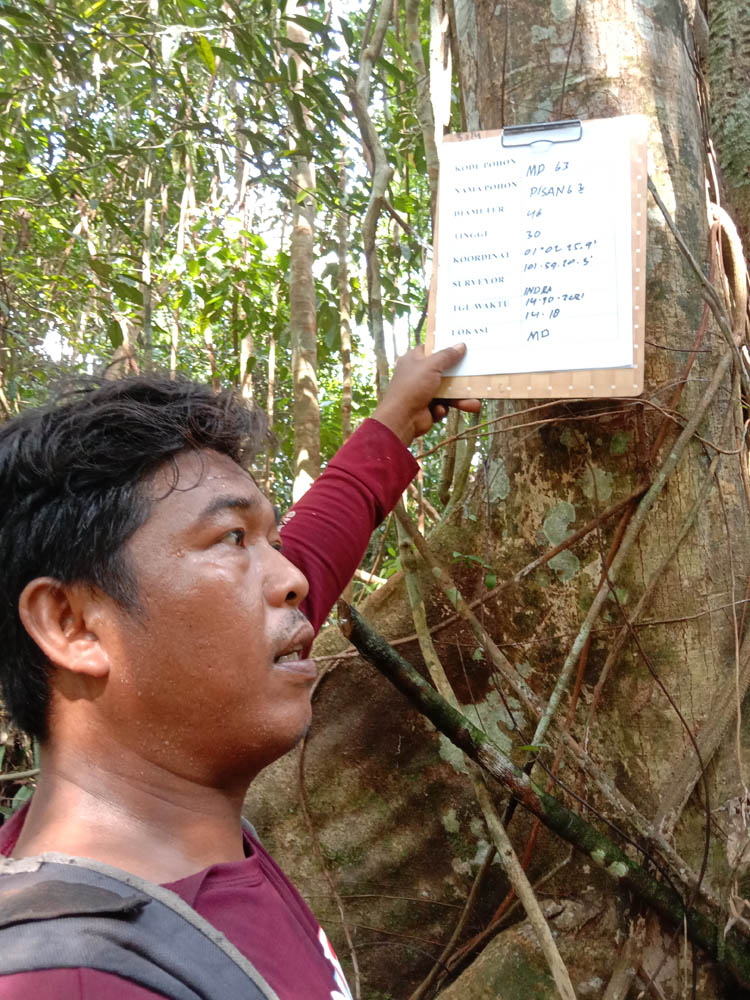 KODE POHON MD 63
NAMA POHON PISANG2
DIAMETER 46
TINGGI 30
KOORDINAT 01°02.25.9'
101.59.20.5'
SURVEYOR INDRA
TGL WAKTU 14.10.2021
14.18
LOKASI MD